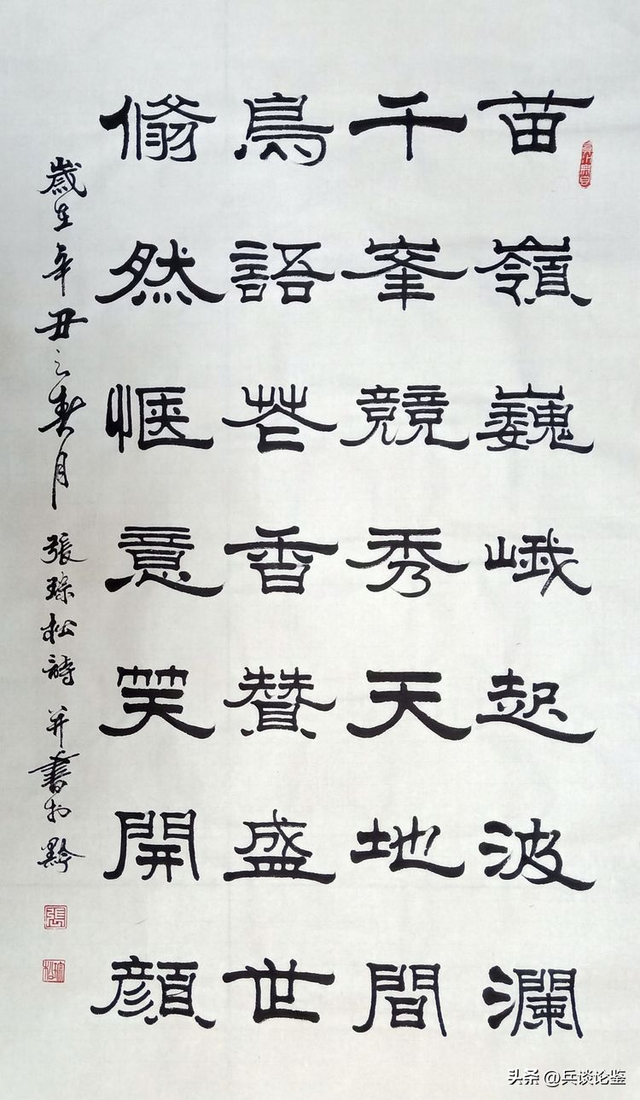 苗嶺巍峨起波瀾
千峯競秀天地間
鳥語花香贊盛世
翛然愜意笑開顔
歲在辛丑之春月張琮松詩并書於黔
張
头条 @兵谈论鉴